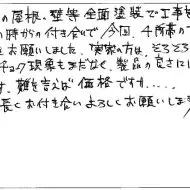 の屋根、壁等全面塗装で工事を
い時からの付き合いで、今回、4ヶ所
をお願いしました。実家の方は、そろそろ
チョーク現象もまだなく、製品の良さに
す。難を言えば価格ですが.....
長くお付き合いよろしくお願いしま